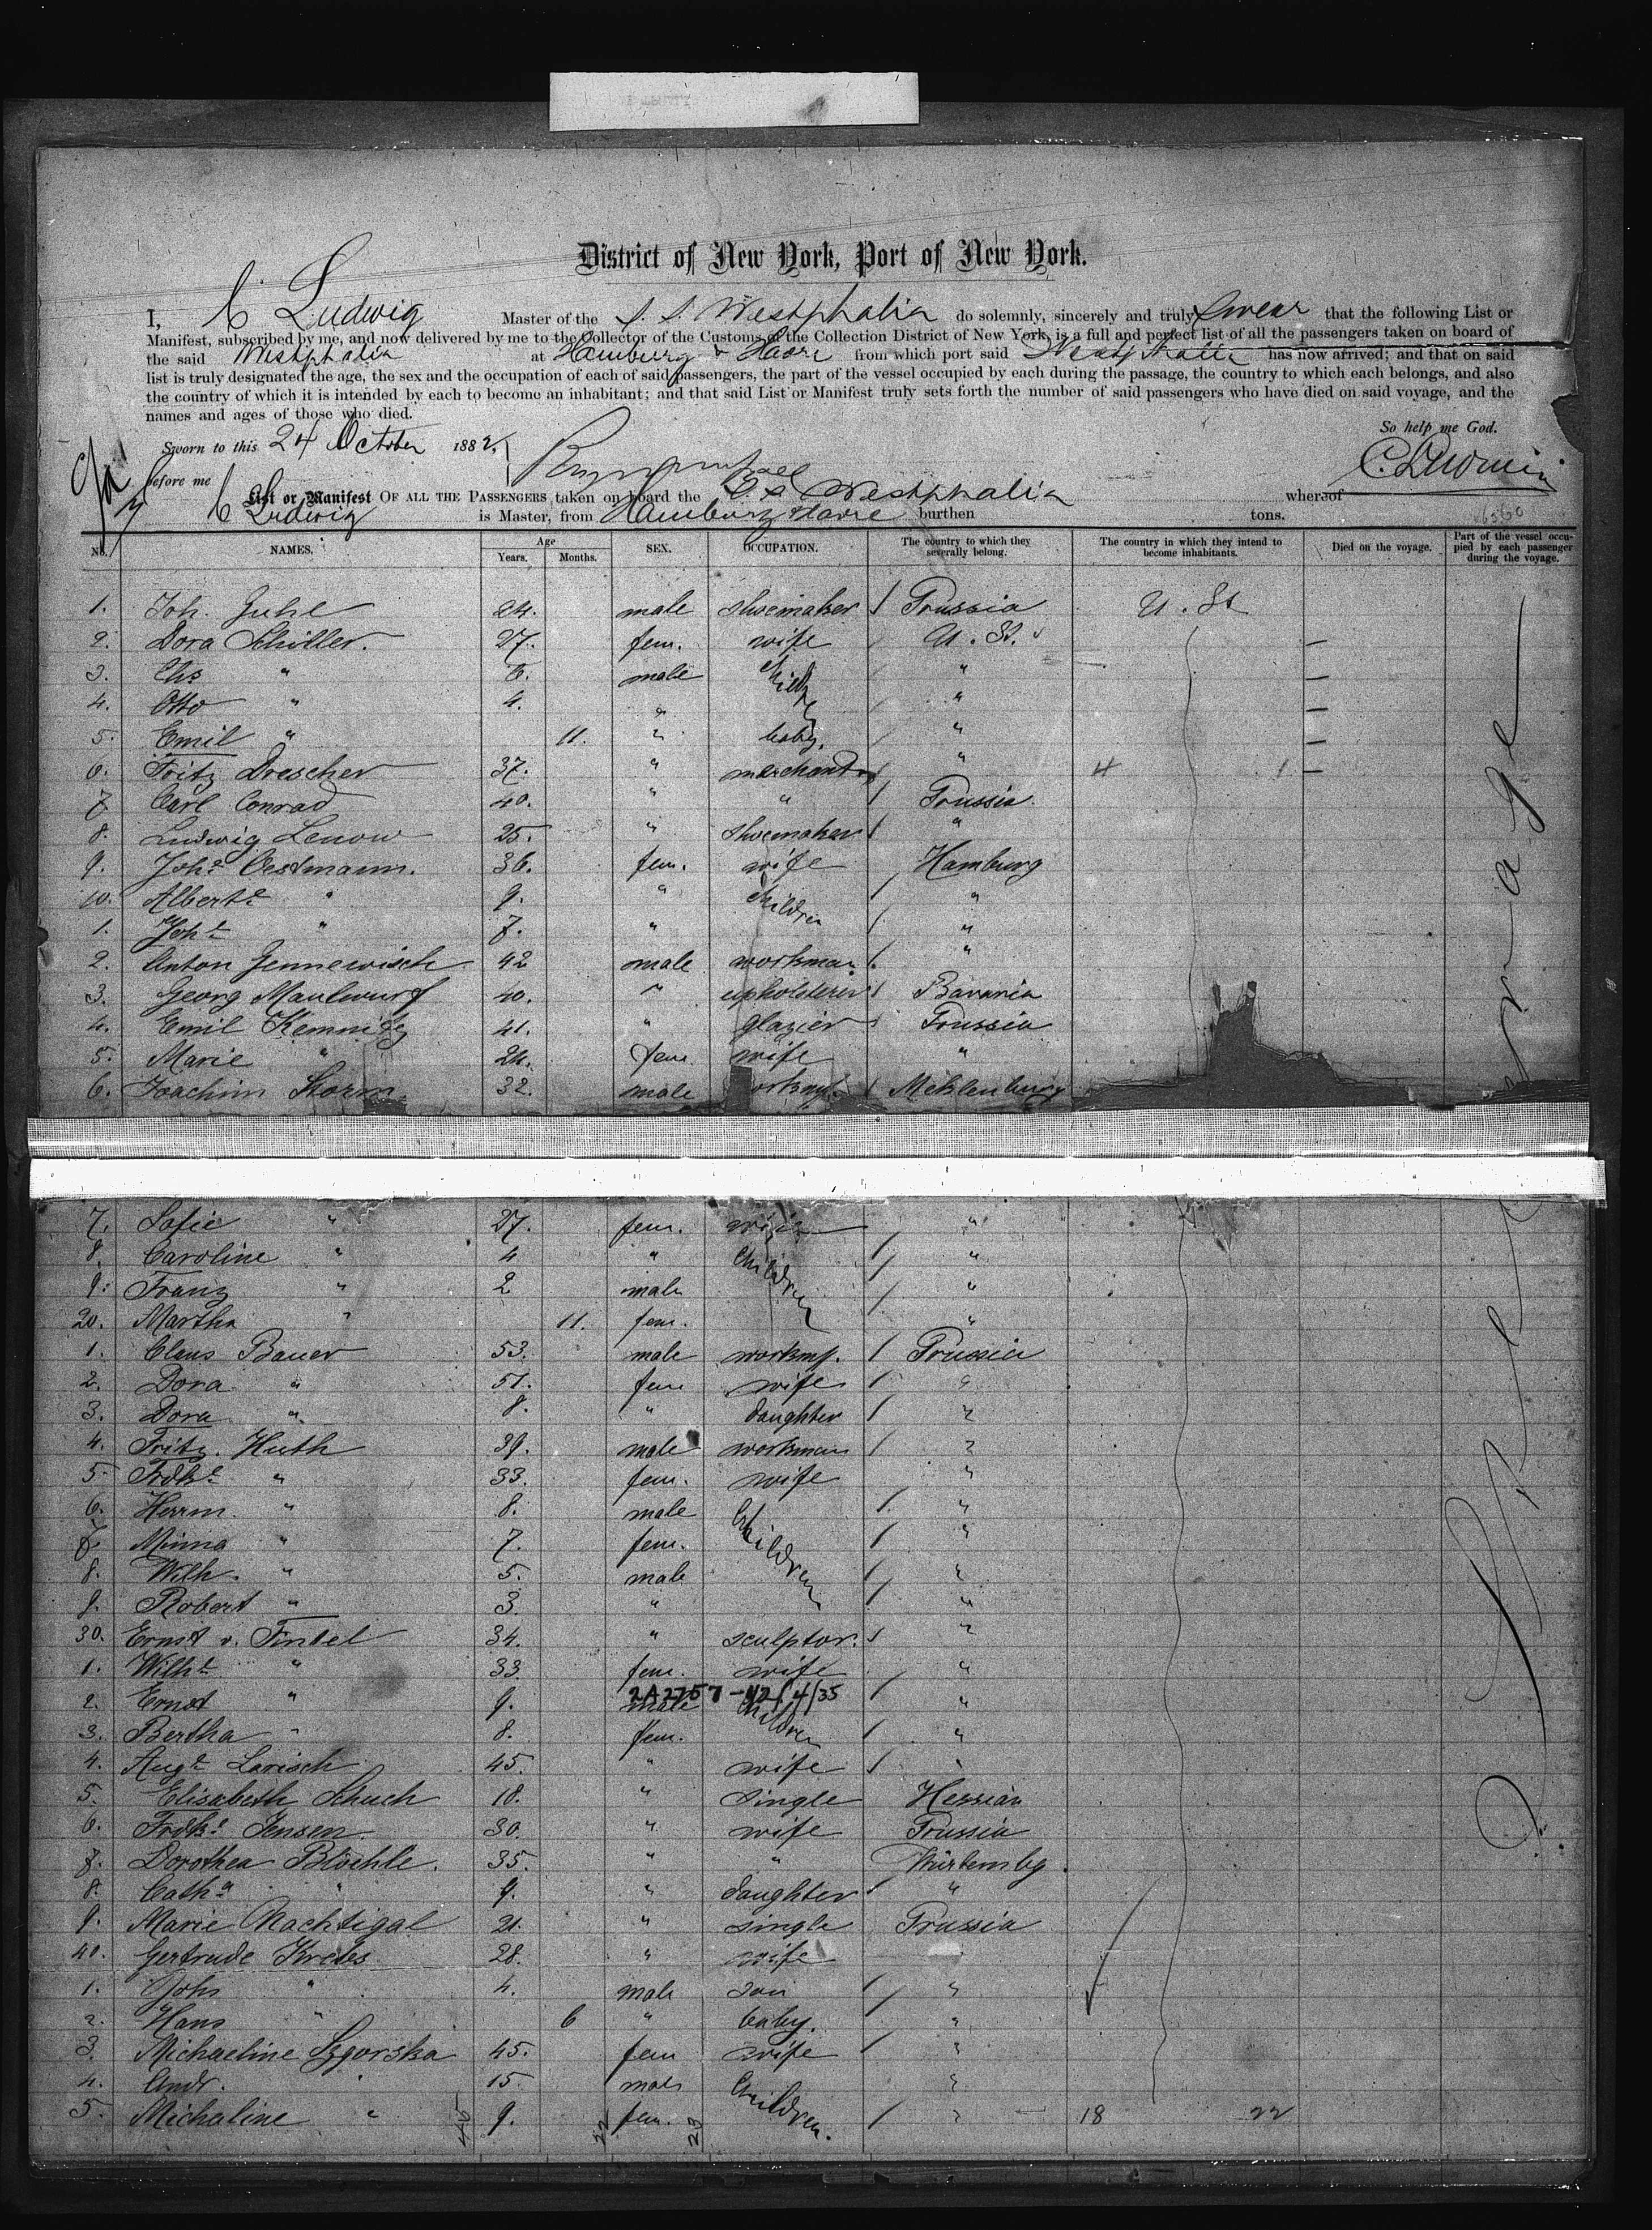 District of New York, Port of New York.
I, C Ludwig Master of the S. S. Westphalia do solemnly, sincerely and truly Swear that the following List or
Manifest, subscribed by me, and now delivered by me to the Collector of the Customs of the Collection District of New York, is a full and perfect list of all the passengers taken on board of
the said Westphalia at Hamburg & Havre from which port said Westphalia has now arrived; and that on said
list is truly designated the age, the sex and the occupation of each of said passengers, the part of the vessel occupied by each during the passage, the country to which each belongs, and also
the country of which it is intended by each to become an inhabitant; and that said List or Manifest truly sets forth the number of said passengers who have died on said voyage, and the
names and ages of those who died.
So help me God.
Sworn to this 24 October 1882,
before me
List or Manifest OF ALL THE PASSENGERS taken on board the S. S. Westphalia whereof
C Ludwig is Master, from Hamburg & Havre burthen tons.
No. NAMES. Age Years. Months. SEX. OCCUPATION. The country to which they severally belong. The country in which they intend to become inhabitants. Died on the voyage. Part of the vessel occupied by each passenger during the voyage.
1. Joh. Guhl 24. male shoemaker Prussia U. St
2. Dora Schiller. 27. fem. wife U. St.
3. Chs " 6. male Children "
4. Otto " 4. " "
5. Emil " 11. " baby. "
6. Fritz Drescher 37. " merchant " 4 1
7 Carl Conrad 40. " " Prussia.
8. Ludwig Lenow 25. " shoemaker "
9. Johe Oestmann. 36. fem. wife Hamburg
10. Alberte " 9. " Children "
1. Johe " 7. " "
2. Anton Jennewisch 42 male workman. "
3. Georg Maulwurf 40. " upholsterer Bavaria
4. Emil Kemnitz 41. " glazier Prussia
5. Marie " 24. fem wife "
6. Joachim Storm 32. male Meklenburg
7. Sofie " 27. fem. wife "
8. Caroline " 4 " Children "
9. Franz " 2 male "
20. Martha " 11. fem. "
1. Claus Bauer 53. male workmn. Prussia
2. Dora " 51. fem wife "
3. Dora " 8. " daughter "
4. Fritz Huth 39. male workman "
5 Fridke " 33. fem. wife "
6. Herrm. " 8. male Children "
7. Minna " 7. fem. "
8. Wilh. " 5. male "
9. Robert " 3. " "
30. Ernst v. Finkel 34. " sculptor. "
1. Wilhe " 33 fem. wife "
2A2757-12/4/35
2. Ernst " 9. male Children "
3. Bertha " 8. fem. "
4. Auge Larisch 45. " wife "
5. Elisabeth Schuch 18. " single Hessian
6. Fridke Jensen 30. " wife Prussia
7. Dorothea Blöchle. 35. " " Würtembg.
8. Catha " 9. " daughter "
9. Marie Nachtigal 21. " single Prussia
40. Gertrude Krebs 28. " wife
1. Johs " 4. male son "
2. Hans " 6 " baby. "
3. Michaeline Szgorska 45. fem wife "
4. Andr. " 15. male Children. "
5. Michaline " 9. fem. " 18 22
Steerage